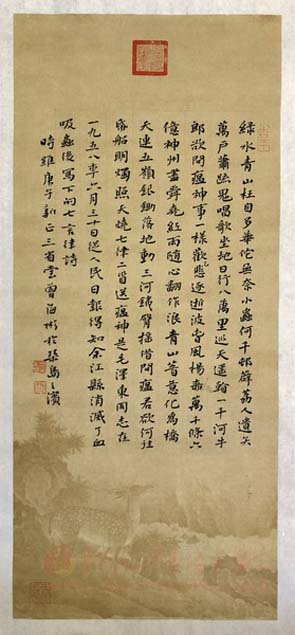 綠水青山枉自多華佗無奈小蟲何千邨薜荔人遺矢
萬戶蕭疏鬼唱歌坐地日行八萬里巡天遙看一千河牛
郎欲問瘟神事一樣歡悲逐逝波春風楊柳萬千條六
億神州盡舜堯紅雨隨心翻作浪青山著意化為橋
天連五嶺銀鋤落地動三河鐵臂搖借問瘟君欲何往
帋船明燭照天燒七律二首送瘟神是毛澤東同志在
一九五八年六月三十日從人民日報得知余江縣消滅了血
吸蟲後寫下的七言律詩
時維庚子新正三省堂曾彬於琴島之濱